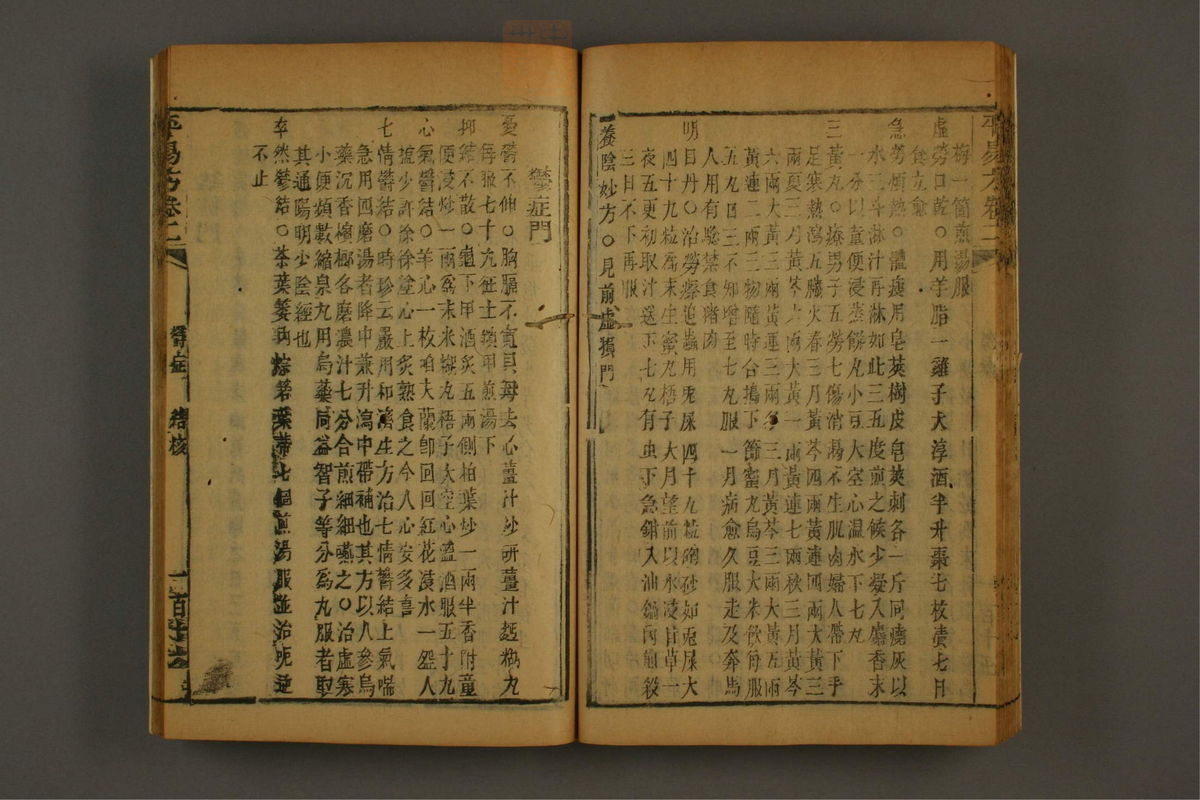 平易方卷二
梅一箇煎湯服
虛勞口乾○用羊脂一雞子大淳酒半升棗七枚漬七日
食立愈
急勞煩熱○體瘦用皂莢樹皮皂莢刺各一斤同燒灰以
水三斗淋汁再淋如此三五度煎之候少凝入麝香末
一分以童便浸蒸餅丸小豆大空心温水下七丸
三黃丸○療男子五勞七傷消渴不生肌肉婦人帶下手
足寒熱瀉五臟火春三月黃芩四兩黃連四兩大黃三
兩夏三月黃芩六兩大黃一兩黃連七兩秋三月黃芩
六兩大黃三兩黃連三兩冬三月黃芩三兩大黃五兩
黃連二兩三物隨時合搗下篩蜜丸烏豆大米飲每服
五丸日三不知增至七丸服一月病愈久服走及奔馬
人用有驗禁食豬肉
明月丹○治勞瘵追蟲用兎屎四十九粒硇砂如兎屎大
四十九粒爲末生蜜丸梧子大月望前以水浸甘草一
夜五更初取汁送下七丸有虫下急鉗入油鍋內煎殺
三日不下再服
養陰妙方○見前虛損門
鬱症門
憂鬱不伸○胸膈不寬貝母去心薑汁炒研薑汁麪糊丸
每服七十丸征士鎖甲煎湯下
抑結不散○龜下甲酒炙五兩側柏葉炒一兩半香附童
便浸炒一兩爲末米糊丸梧子大空心溫酒服五十丸
心氣鬱結○羊心一枚咱夫蘭卽回回紅花浸水一盌人
塩少許徐徐塗心上炙熟食之令人心安多喜
七情鬱結○時珍云嚴用和濟生方治七情鬱結上氣喘
急用四磨湯者降中兼升瀉中帶補也其方以人參烏
藥沉香檳榔各磨濃汁七分合煎細細嚥之○治虛寒
小便頻數縮泉丸用烏藥同益智子等分爲丸服者取
其通陽明少陰經也
卒然鬱結○
葉蒂七個煎湯服並治呃逆
不止
平易方卷二
鬱症
結核